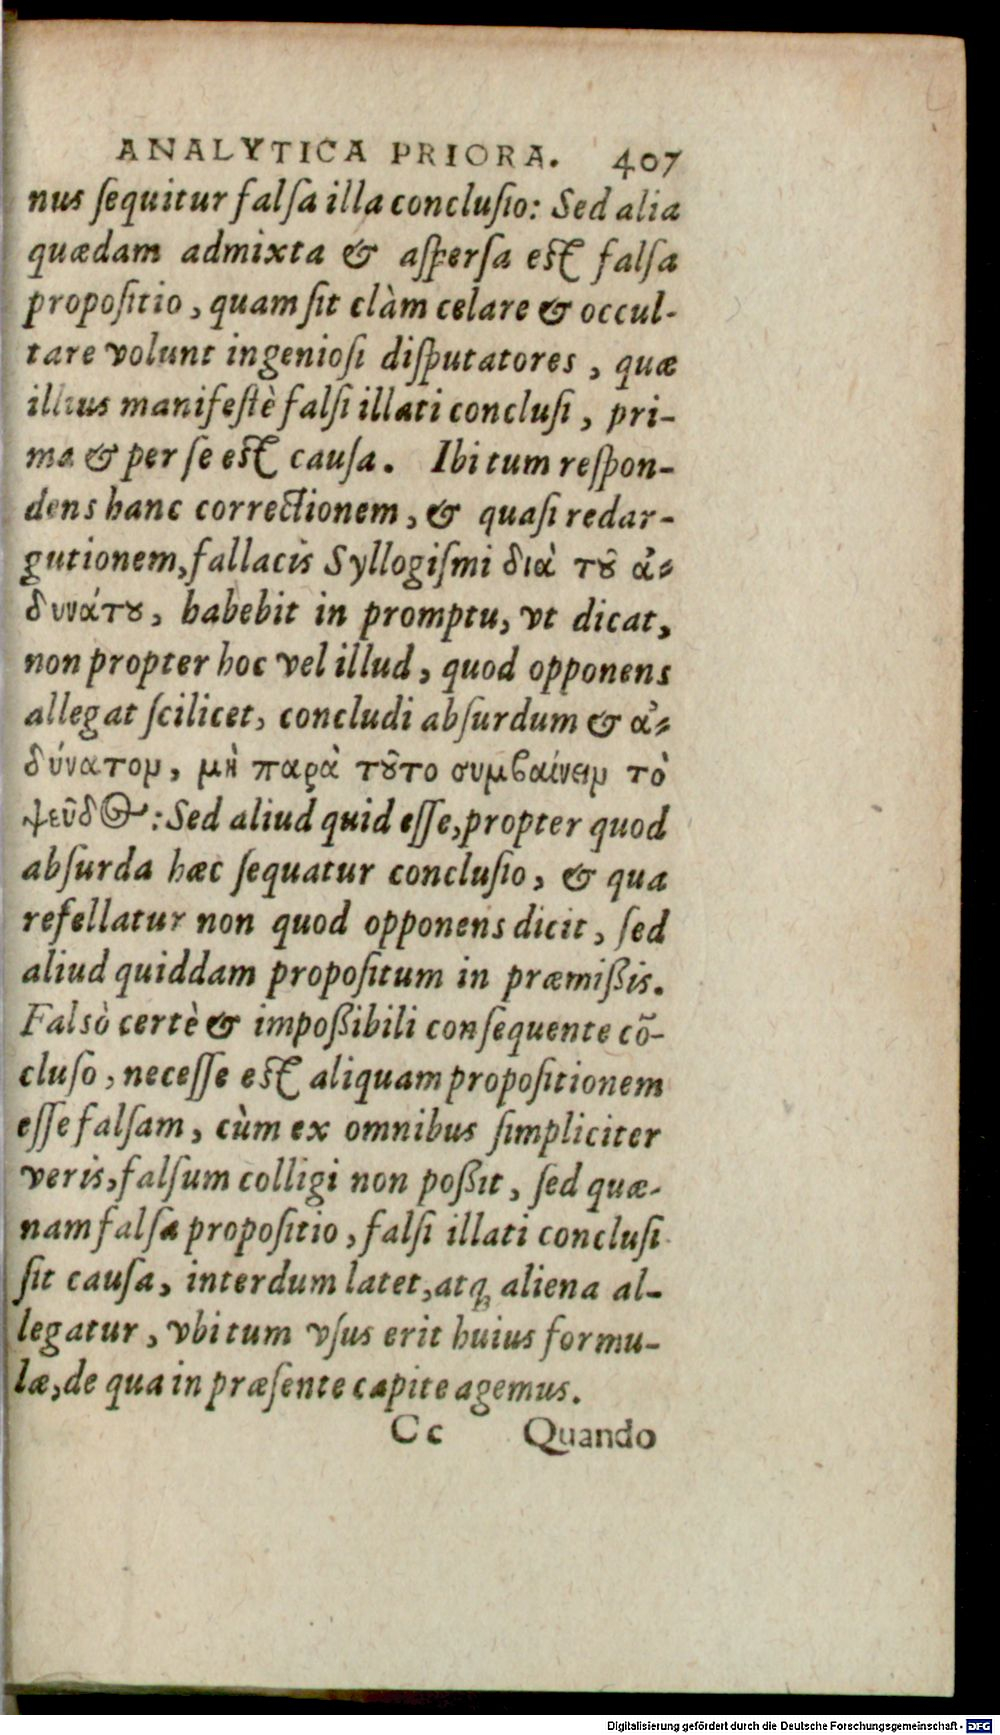 ANALYTICA PRIORA. 407
nus sequitur falsa illa conclusio: Sed alia
quædam admixta & aspersa est falsa
propositio, quam sit clàm celare & occul-
tare volunt ingeniosi disputatores, quæ
illius manifestè falsi illati conclusi, pri-
ma & per se est causa. Ibi tum respon-
dens hanc correctionem, & quasi redar-
gutionem, fallacis Syllogismi διὰ τȣ͂ ἀ-
δυνάτȣ, habebit in promptu, vt dicat,
non propter hoc vel illud, quod opponens
allegat scilicet, concludi absurdum & ἀ-
δύνατον, μὴ παρὰ τȣ͂το συμβαίνειν τὸ
ψεῦδος: Sed aliud quid esse, propter quod
absurda hæc sequatur conclusio, & qua
refellatur non quod opponens dicit, sed
aliud quiddam propositum in præmißis.
Falsò certè & impoßibili consequente cō-
cluso, necesse est aliquam propositionem
esse falsam, cùm ex omnibus simpliciter
veris, falsum colligi non poßit, sed quæ-
nam falsa propositio, falsi illati conclusi
sit causa, interdum latet, atq; aliena al-
legatur, vbi tum vsus erit huius formu-
læ, de qua in præsente capite agemus.
Cc Quando
Digitalisierung gefördert durch die Deutsche Forschungsgemeinschaft - DFG